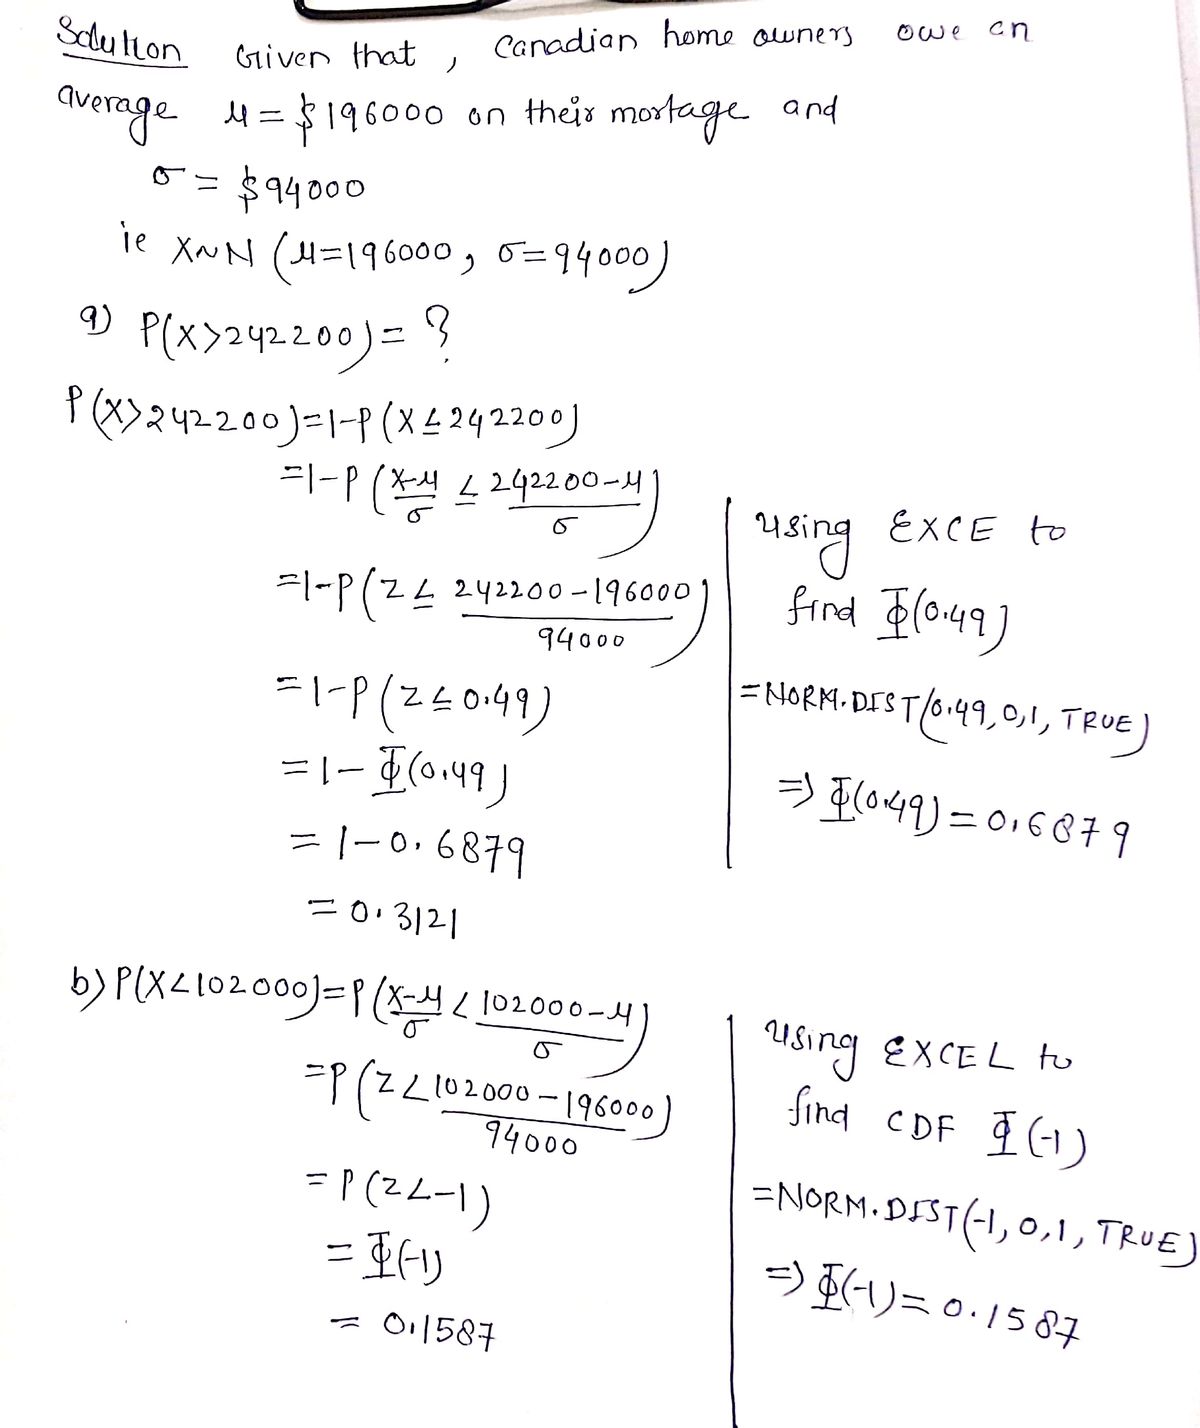 Solution Given that , Canadian home owners owe an
average μ = $196000 on their mortage and
σ = $94000
ie X~N (μ=196000, σ=94000)
a) P(X>242200)= ?
P(X>242200)=1-P(X≤242200)
=1-P((X-μ)/σ ≤ (242200-μ)/σ)
=1-P(Z≤ (242200-196000)/94000)
=1-P(Z≤0.49)
=1-Φ(0.49)
= 1-0.6879
= 0.3121
using EXCE to
find Φ(0.49)
=NORM.DIST(0.49,0,1, TRUE)
=> Φ(0.49)=0.6879
b) P(X<102000)=P((X-μ)/σ < (102000-μ)/σ)
=P(Z<(102000-196000)/94000)
= P(Z<-1)
= Φ(-1)
= 0.1587
using EXCEL to
find CDF Φ(-1)
=NORM.DIST(-1,0,1, TRUE)
=> Φ(-1)= 0.1587